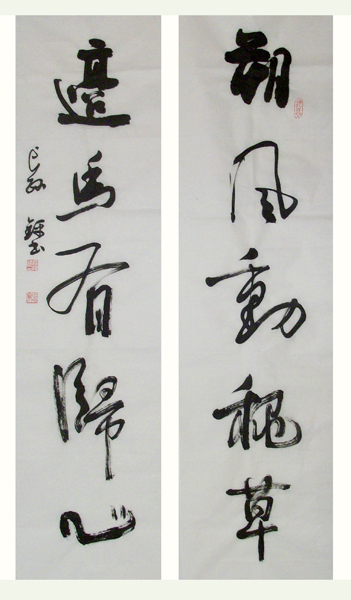 朔風動秋草
邊馬有歸心